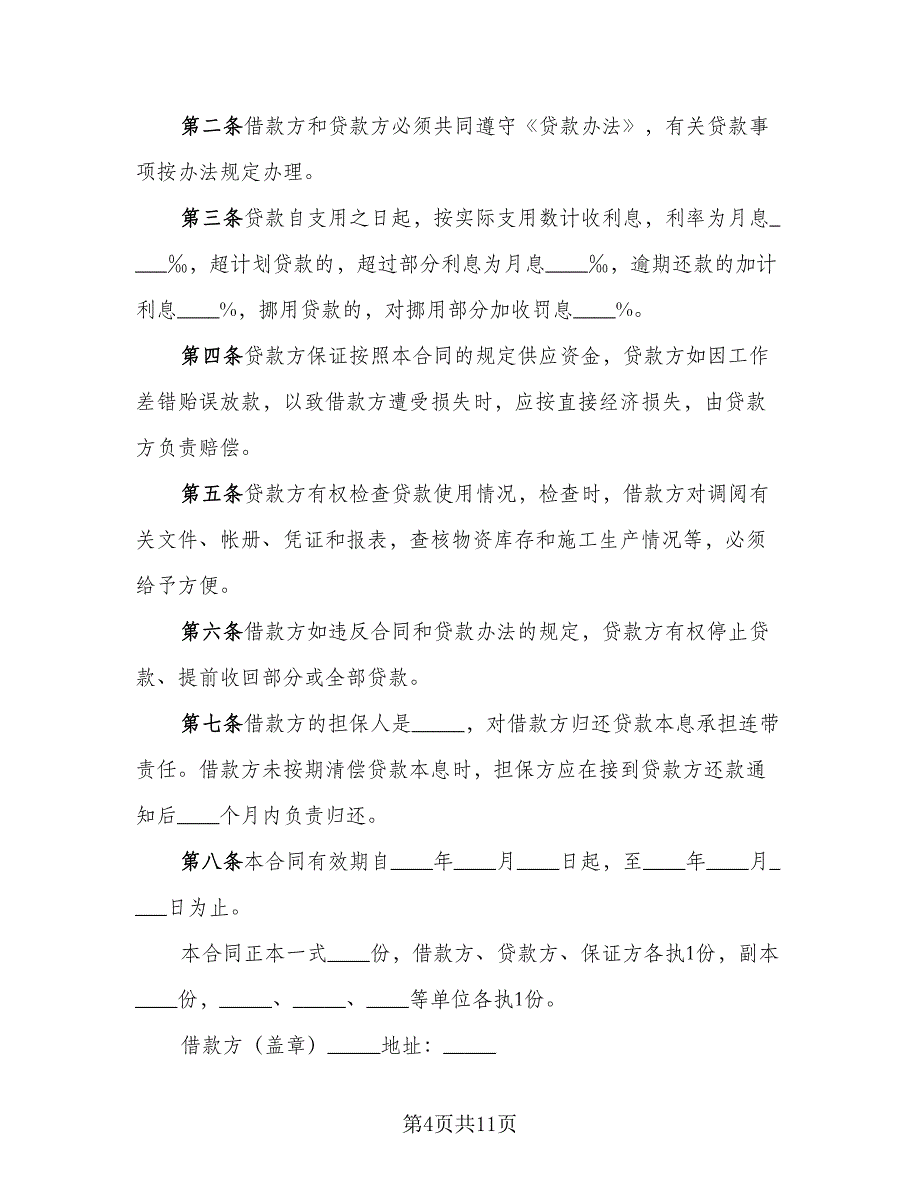 第二条借款方和贷款方必须共同遵守《贷款办法》，有关贷款事
项按办法规定办理。
第三条贷款自支用之日起，按实际支用数计收利息，利率为月息_
___‰，超计划贷款的，超过部分利息为月息____‰，逾期还款的加计
利息____%，挪用贷款的，对挪用部分加收罚息____%。
第四条贷款方保证按照本合同的规定供应资金，贷款方如因工作
差错贻误放款，以致借款方遭受损失时，应按直接经济损失，由贷款
方负责赔偿。
第五条贷款方有权检查贷款使用情况，检查时，借款方对调阅有
关文件、帐册、凭证和报表，查核物资库存和施工生产情况等，必须
给予方便。
第六条借款方如违反合同和贷款办法的规定，贷款方有权停止贷
款、提前收回部分或全部贷款。
第七条借款方的担保人是_____，对借款方归还贷款本息承担连带
责任。借款方未按期清偿贷款本息时，担保方应在接到贷款方还款通
知后____个月内负责归还。
第八条本合同有效期自____年____月____日起，至____年____月_
___日为止。
本合同正本一式____份，借款方、贷款方、保证方各执1份，副本
____份，_____、_____、____等单位各执1份。
借款方（盖章）_____地址：_____
第4页共11页